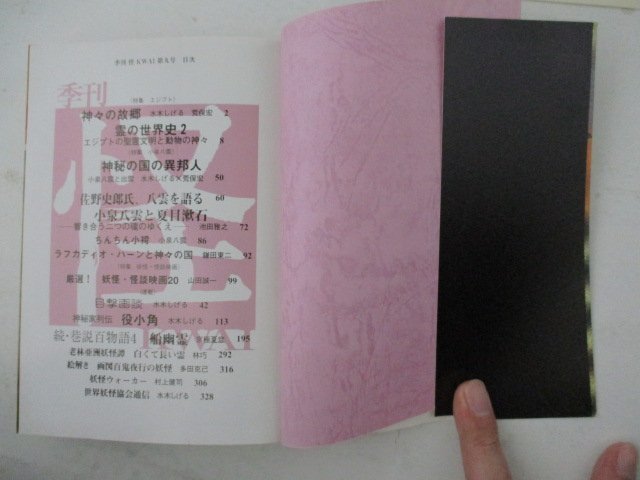 季刊 怪 KWAI 第九号 目次
季刊
怪
KWAI
〈特集 エジプト〉
神々の故郷 水木しげる 荒俣宏 2
霊の世界史2
エジプトの聖霊文明と動物の神々 8
〈特集 小泉八雲〉
神秘の国の異邦人
小泉八雲と出雲 水木しげる×荒俣宏 50
佐野史郎氏、八雲を語る 60
小泉八雲と夏目漱石
――響き合う二つの魂のゆくえ―― 池田雅之 72
ちんちん小袴 小泉八雲 86
ラフカディオ・ハーンと神々の国 鎌田東二 92
〈特集 妖怪・怪談映画〉
厳選! 妖怪・怪談映画20 山田誠一 99
〈連載〉
目撃画談 水木しげる 42
神秘家列伝 役小角 水木しげる 113
続・巷説百物語4 船幽霊 京極夏彦 195
老林亜洲妖怪譚 白くて長い霊 林巧 292
絵解き 画図百鬼夜行の妖怪 多田克己 316
妖怪ウォーカー 村上健司 306
世界妖怪協会通信 水木しげる 328